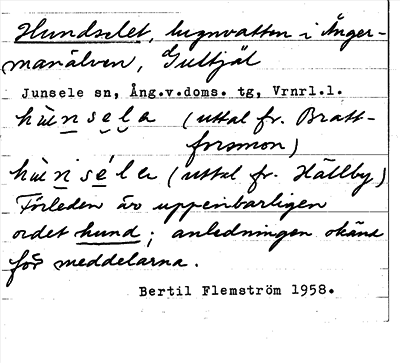 Hundselet, lugnvatten i Ånger-
manälven, Gulltjäl
Junsele sn, Ång.v.doms. tg, Vrnrl.l.
hùn̲se̲la (uttal fr. Bratt-
forsmon)
hùn̲sé̲la (uttal fr. Hällby)
Förleden är uppenbarligen
ordet hund; anledningen okänd
för meddelarna.
Bertil Flemström 1958.